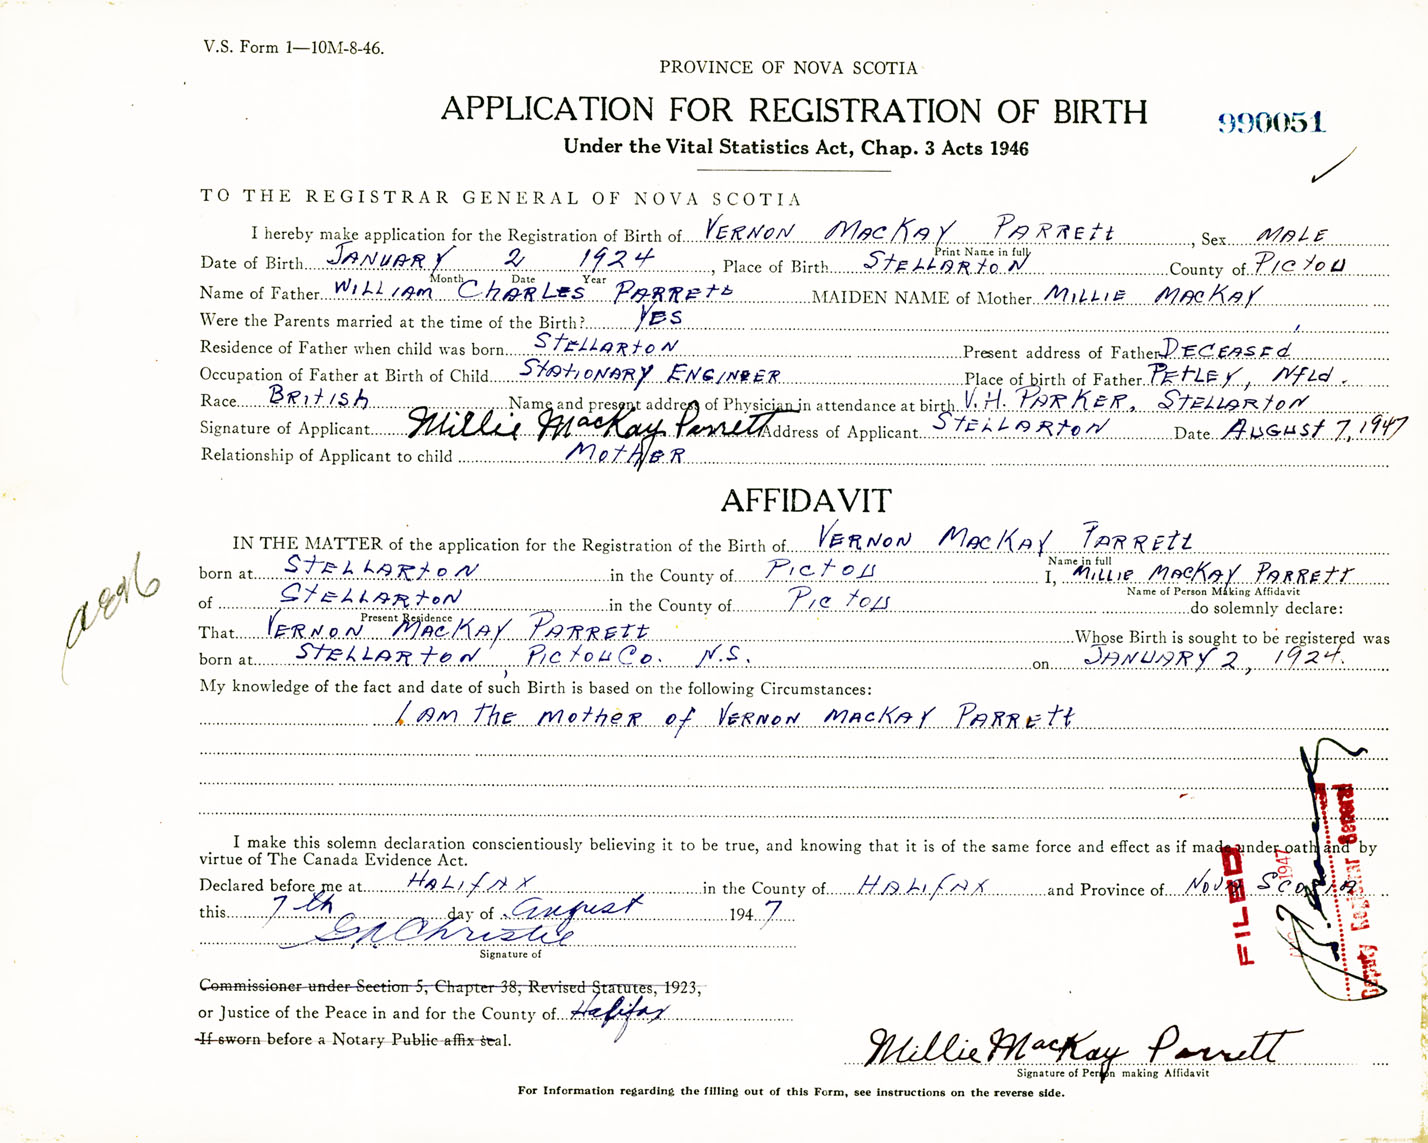 V.S. Form 1—10M-8-46.
PROVINCE OF NOVA SCOTIA
APPLICATION FOR REGISTRATION OF BIRTH
990051
Under the Vital Statistics Act, Chap. 3 Acts 1946
TO THE REGISTRAR GENERAL OF NOVA SCOTIA
I hereby make application for the Registration of Birth of VERNON MACKAY PARRETT, Sex MALE
Print Name in full
Date of Birth JANUARY 2 1924, Place of Birth STELLARTON County of PICTOU
Month Date Year
Name of Father WILLIAM CHARLES PARRETT MAIDEN NAME of Mother MILLIE MACKAY
Were the Parents married at the time of the Birth? YES
Residence of Father when child was born STELLARTON Present address of Father DECEASED
Occupation of Father at Birth of Child STATIONARY ENGINEER Place of birth of Father PETLEY, NFLD.
Race BRITISH Name and present address of Physician in attendance at birth V.H. PARKER, STELLARTON
Signature of Applicant Millie MacKay Parrett Address of Applicant STELLARTON Date AUGUST 7, 1947
Relationship of Applicant to child MOTHER
AFFIDAVIT
IN THE MATTER of the application for the Registration of the Birth of VERNON MACKAY PARRETT
Name in full
born at STELLARTON in the County of PICTOU I, MILLIE MACKAY PARRETT
Name of Person Making Affidavit
of STELLARTON in the County of PICTOU do solemnly declare:
Present Residence
That VERNON MACKAY PARRETT Whose Birth is sought to be registered was
born at STELLARTON, PICTOU CO. N.S. on JANUARY 2, 1924.
My knowledge of the fact and date of such Birth is based on the following Circumstances:
I AM THE MOTHER OF VERNON MACKAY PARRETT
I make this solemn declaration conscientiously believing it to be true, and knowing that it is of the same force and effect as if made under oath and by
virtue of The Canada Evidence Act.
Declared before me at HALIFAX in the County of HALIFAX and Province of NOVA SCOTIA
this 7th day of August 1947
G A Christie
Signature of
Commissioner under Section 5, Chapter 38, Revised Statutes, 1923,
or Justice of the Peace in and for the County of Halifax
If sworn before a Notary Public affix seal.
Millie MacKay Parrett
Signature of Person making Affidavit
For Information regarding the filling out of this Form, see instructions on the reverse side.
FILED
1947
Deputy Registrar General